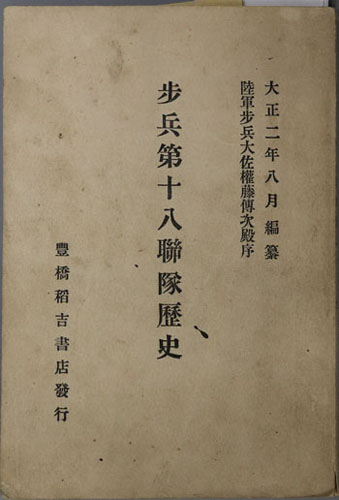 大正二年八月編纂
陸軍步兵大佐權藤傳次殿序
步兵第十八聯隊歷史
豐橋稻吉書店發行